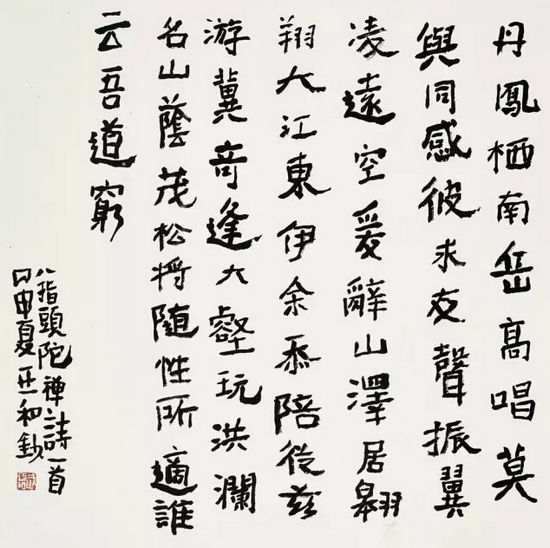 丹鳳栖南岳高唱莫
與同感彼求友聲振翼
凌遠空爰辭山澤居翱
翔大江東伊余忝陪從兹
游冀奇逢大壑玩洪瀾
名山蔭茂松將隨性所適誰
云吾道窮
八指頭陀禪詩一首
申夏初鈔